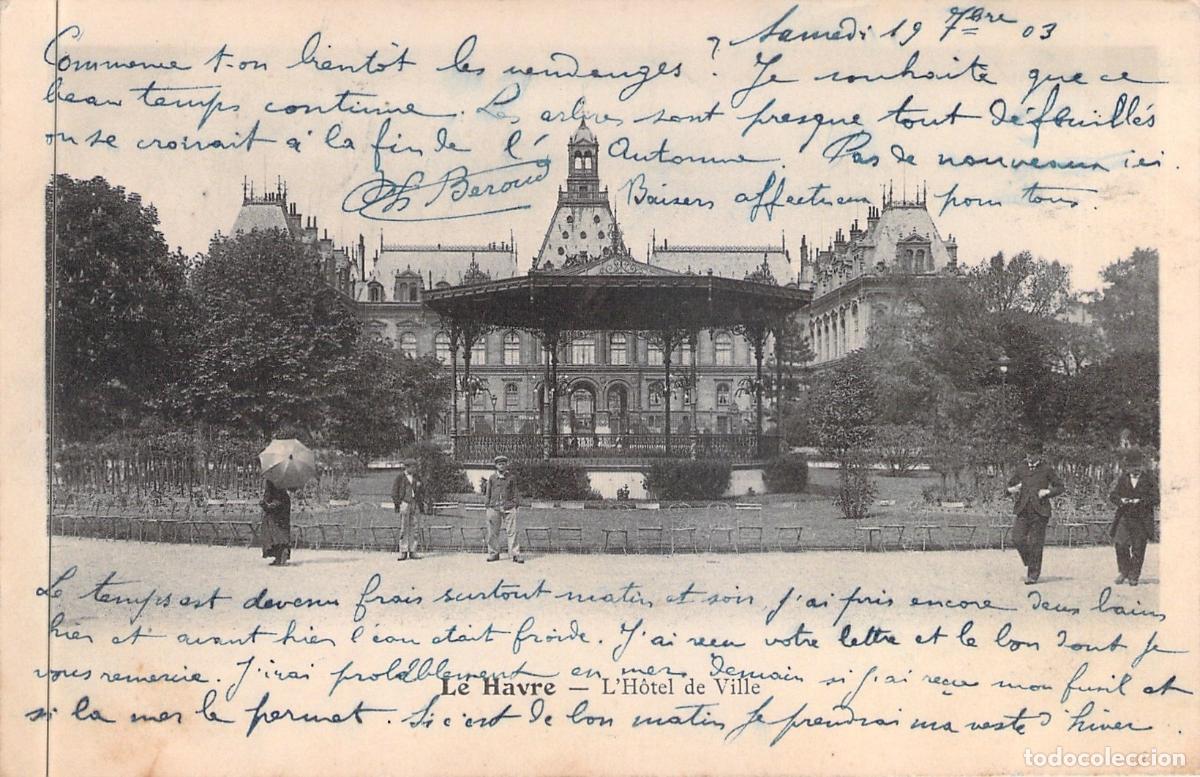 Samedi 19 7bre 03
Commence t-on bientôt les vendanges ? Je souhaite que ce
beau temps continue. Les arbres sont presque tout défeuillés
on se croirait à la fin de l'Automne. Pas de nouveaux ici.
Ch Beroud Baisers affectueux pour tous.
Le temps est devenu frais surtout matin et soir, j'ai pris encore deux bains
hier et avant hier l'eau était froide. J'ai reçu votre lettre et le bon dont je
vous remercie. J'irai probablement en mer demain si j'ai reçu mon fusil et
Le Havre — L'Hôtel de Ville
si la mer le permet. Si c'est de bon matin je prendrai ma veste d'hiver.
todocoleccion